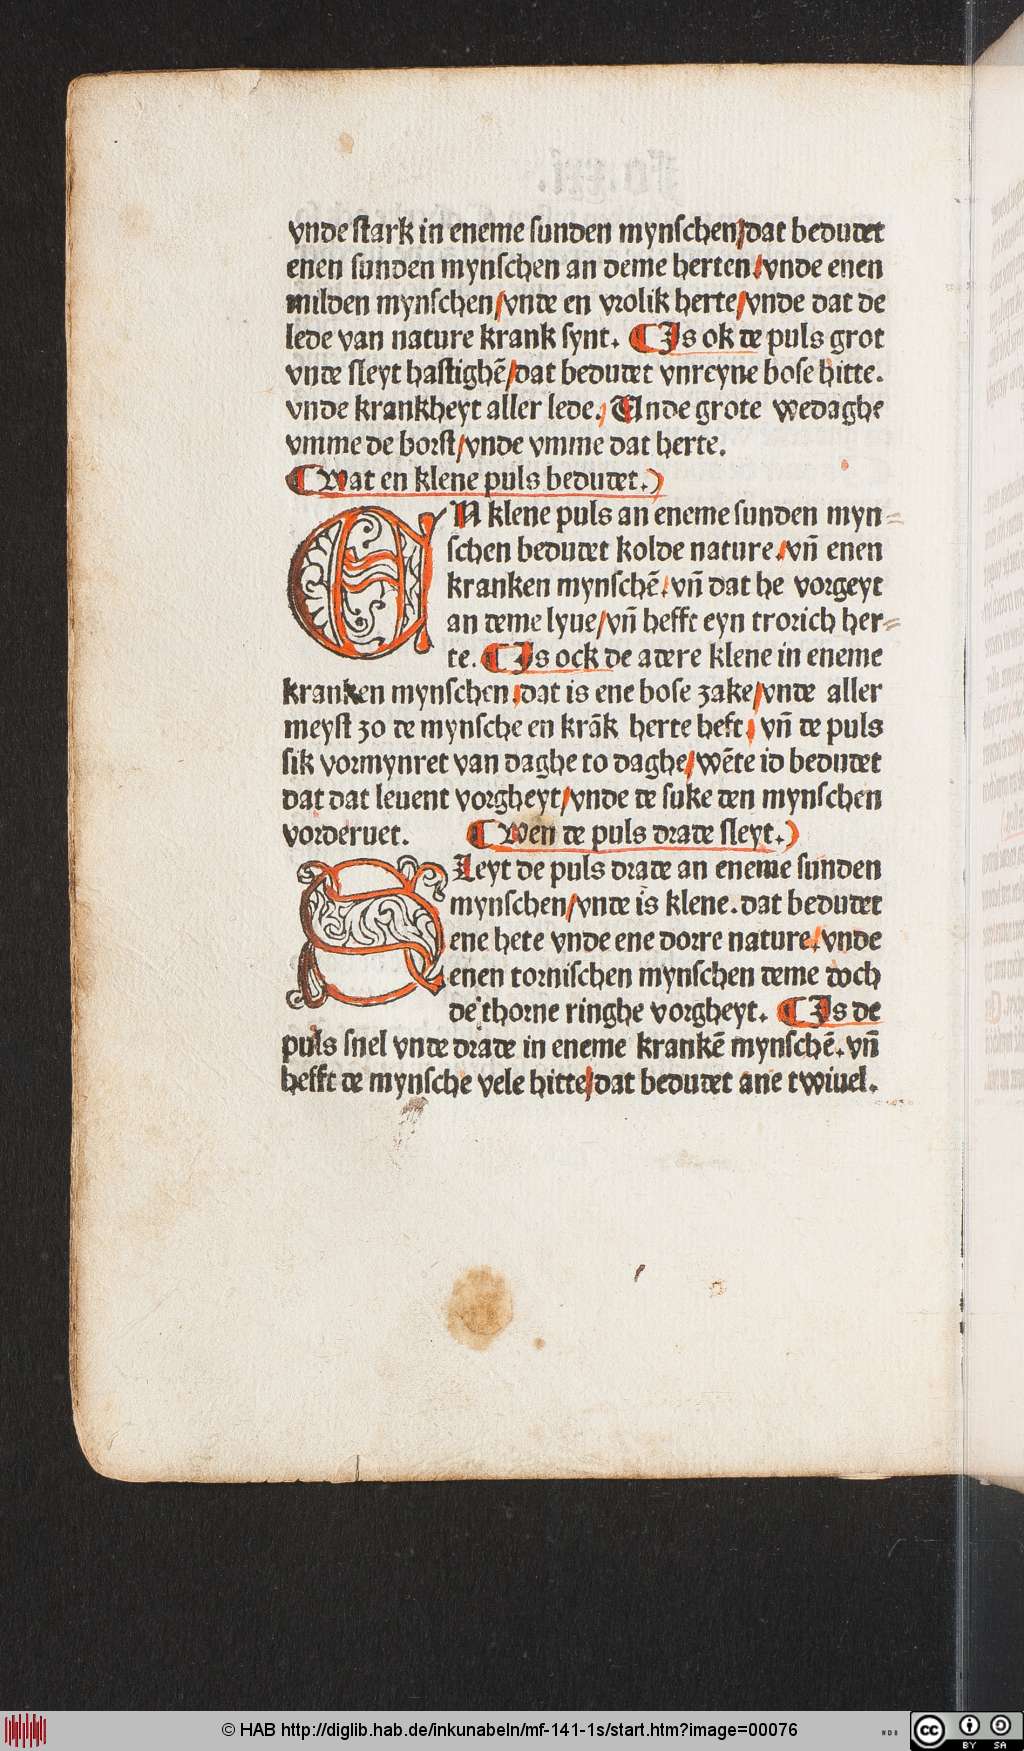 vnde stark in eneme sunden mynschen/dat bedudet
enen sunden mynschen an deme herten/vnde enen
milden mynschen/vnde en vrolik herte/vnde dat de
lede van nature krank synt. ¶ Is ok de puls grot
vnde sleyt hastighē/dat bedudet vnreyne bose hitte.
vnde krankheyt aller lede. Vnde grote wedaghe
vmme de borst/vnde vmme dat herte.
¶ Wat en klene puls bedudet.)
EN klene puls an eneme sunden myn⸗
schen bedudet kolde nature/vn̄ enen
kranken mynschē/vn̄ dat he vorgeyt
an deme lyue/vn̄ hefft eyn trorich her⸗
te. ¶ Is ock de adere klene in eneme
kranken mynschen/dat is ene bose zake/vnde aller
meyst zo de mynsche en krāk herte heft/ vn̄ de puls
sik vormynret van daghe to daghe/wēte id bedudet
dat dat leuent vorgheyt/vnde de suke den mynschen
vorderuet. ¶ Wen de puls drade sleyt.)
SLeyt de puls drade an eneme sunden
mynschen/vnde is klene. dat bedudet
ene hete vnde ene dorre nature/vnde
enen tornischen mynschen deme doch
de thorne ringhe vorgheyt. ¶ Is de
puls snel vnde drade in eneme krankē mynschē. vn̄
hefft de mynsche vele hitte/dat bedudet ane twiuel.
© HAB http://diglib.hab.de/inkunabeln/mf-141-1s/start.htm?image=00076
WDB
cc BY SA